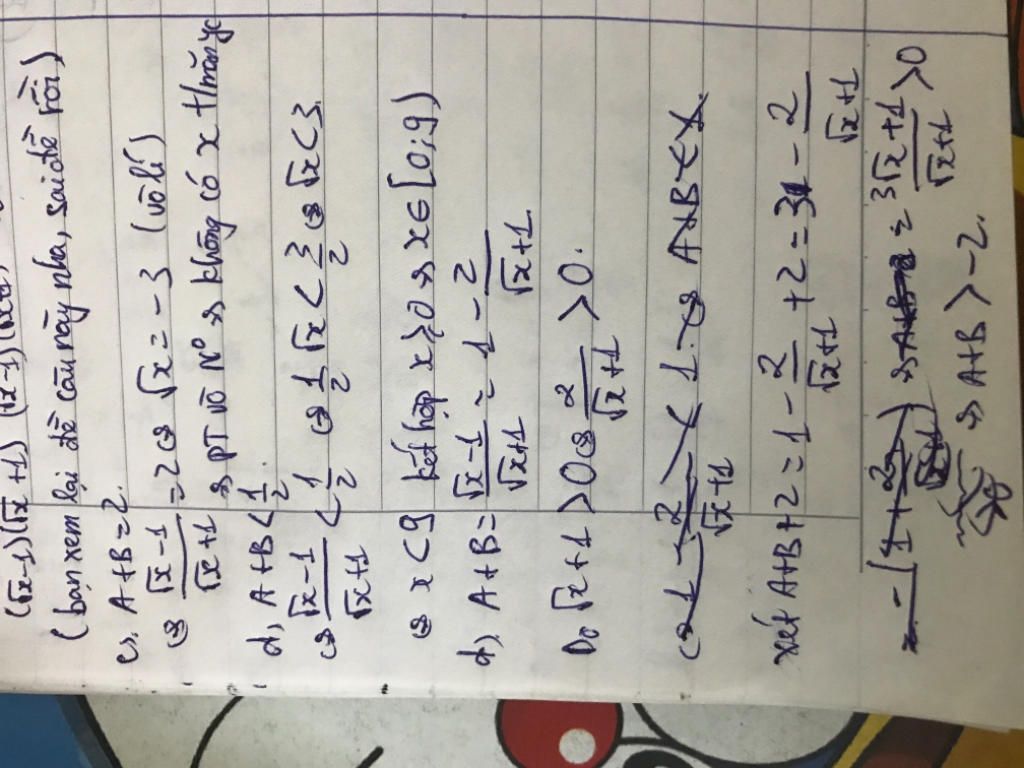 (√x-1)(√x+1) (√x-1)(
(bạn xem lại đề câu này nha, sai đề rồi)
c), A+B=2.
⇔ (√x-1)/(√x+1) = 2 ⇔ √x = -3 (vô lí)
⇒ PT vô N⁰ ⇒ không có x t/mãn yc
d, A+B < 1/2.
⇔ (√x-1)/(√x+1) < 1/2 ⇔ 1/2 √x < 3/2 ⇔ √x < 3.
⇔ x < 9 kết hợp x ≥ 0 ⇒ x ∈ [0; 9)
d). A+B = (√x-1)/(√x+1) = 1 - 2/(√x+1)
Do √x+1 > 0 ⇔ 2/(√x+1) > 0.
⇔ 1 - 2/(√x+1) < 1 ⇔ A+B < 1.
xét A+B+2 = 1 - 2/(√x+1) + 2 = 3 - 2/(√x+1)
= -(1 + 2/(√x+1)) ⇒ A+B = (3√x+1)/(√x+1) > 0
⇒ A+B > -2.